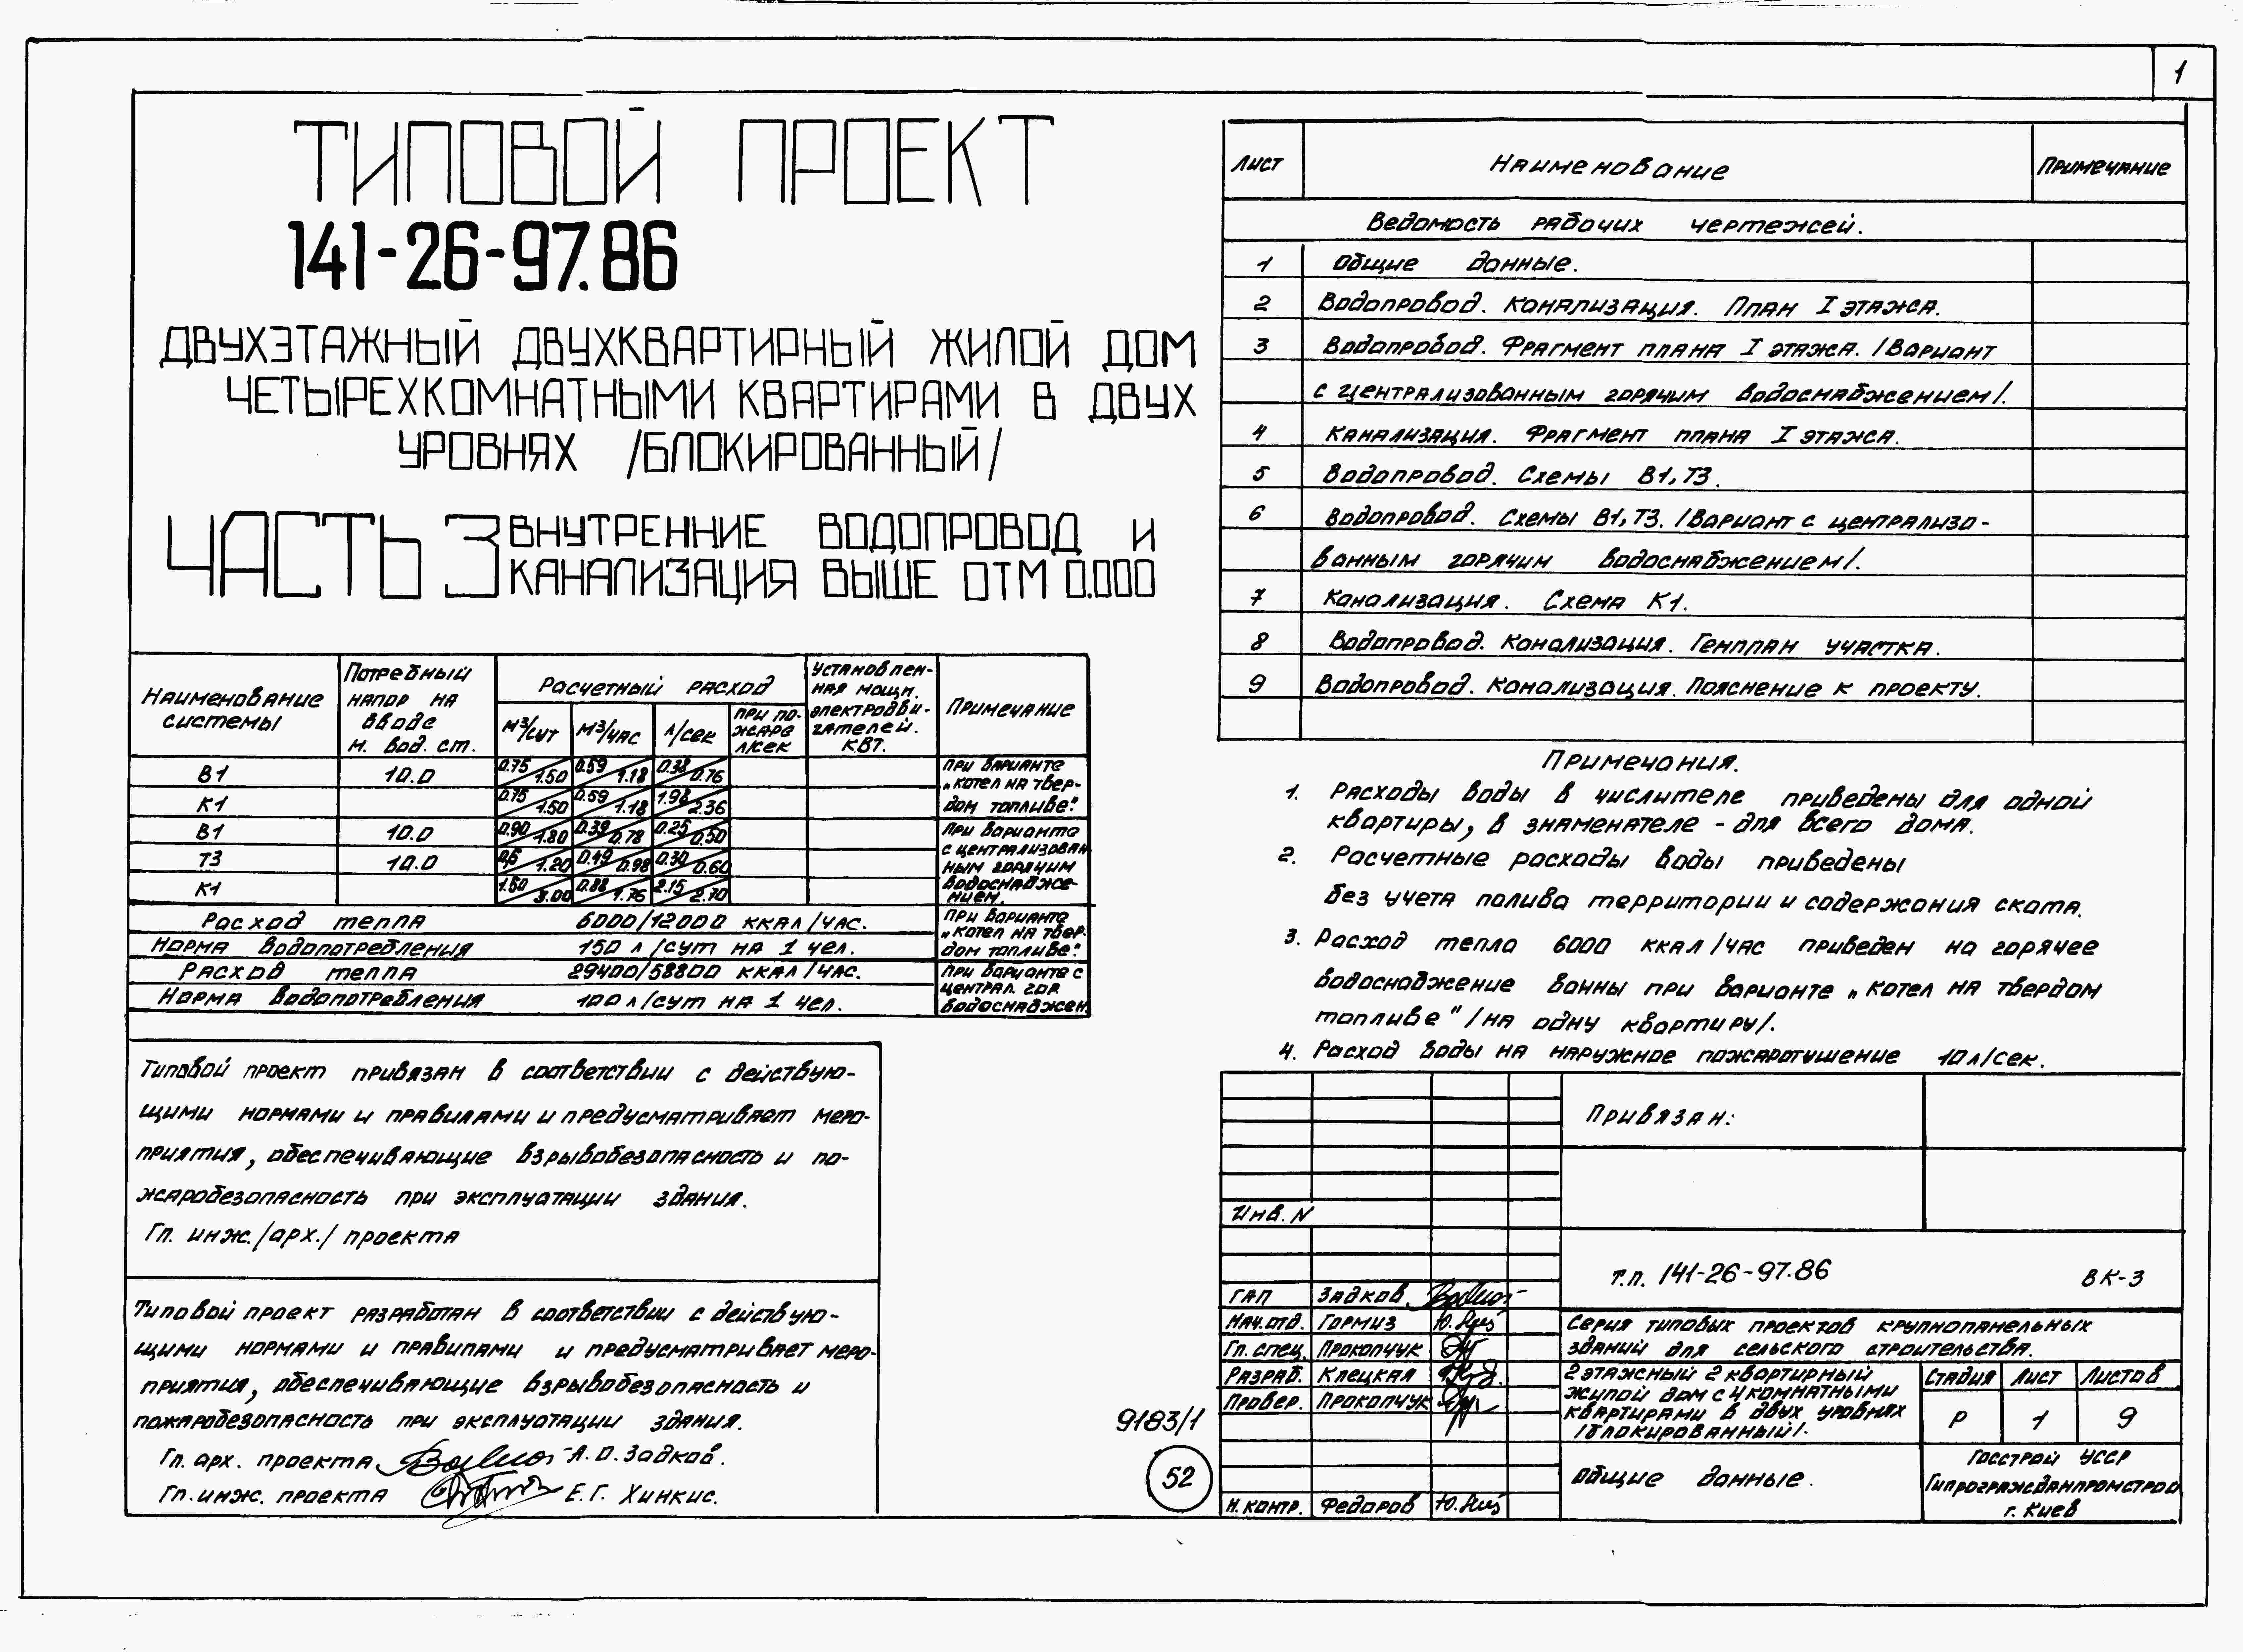 1
ТИПОВОЙ ПРОЕКТ
141-26-97.86
ДВУХЭТАЖНЫЙ ДВУХКВАРТИРНЫЙ ЖИЛОЙ ДОМ
ЧЕТЫРЕХКОМНАТНЫМИ КВАРТИРАМИ В ДВУХ
УРОВНЯХ /БЛОКИРОВАННЫЙ/
ЧАСТЬ 3 ВНУТРЕННИЕ ВОДОПРОВОД И
КАНАЛИЗАЦИЯ ВЫШЕ ОТМ 0.000
Наименование системы | Потребный напор на вводе м. вод. ст. | Расчетный расход | Установлен-ная мощн. электродви-гателей. кВт. | Примечание
м³/сут | м³/час | л/сек | при по-жаре л/сек
В1 10.0 0.75/1.50 0.59/1.18 0.38/0.76
К1 0.75/1.50 0.59/1.18 1.98/2.36
при варианте
„котел на твер-
дом топливе".
В1 10.0 0.90/1.80 0.39/0.78 0.25/0.50
Т3 10.0 0,6/1.20 0.49/0.98 0.30/0.60
К1 1.50/3.00 0.88/1.76 2.15/2.70
при варианте
с централизован
ным горячим
водоснабже-
нием.
Расход тепла 6000/12000 ккал/час.
Норма водопотребления 150 л/сут на 1 чел.
при варианте
„котел на твер.
дом топливе".
Расход тепла 29400/58800 ккал/час.
Норма водопотребления 100 л/сут на 1 чел.
при варианте с
централ. гор
водоснабжен.
Типовой проект привязан в соответствии с действую-
щими нормами и правилами и предусматривает меро-
приятия, обеспечивающие взрывобезопасность и по-
жаробезопасность при эксплуатации здания.
Гл. инж./арх./ проекта
Типовой проект разработан в соответствии с действую-
щими нормами и правилами и предусматривает меро-
приятия, обеспечивающие взрывобезопасность и
пожаробезопасность при эксплуатации здания.
Гл. арх. проекта А.О. Задков.
Гл. инж. проекта Е.Г. Хинкис.
Лист | Наименование | Примечание
Ведомость рабочих чертежей.
1 Общие данные.
2 Водопровод. Канализация. План I этажа.
3 Водопровод. Фрагмент плана I этажа. /Вариант
с централизованным горячим водоснабжением/.
4 Канализация. Фрагмент плана I этажа.
5 Водопровод. Схемы В1, Т3.
6 Водопровод. Схемы В1, Т3. /Вариант с централизо-
ванным горячим водоснабжением/.
7 Канализация. Схема К1.
8 Водопровод. Канализация. Генплан участка.
9 Водопровод. Канализация. Пояснение к проекту.
Примечания.
1. Расходы воды в числителе приведены для одной
квартиры, в знаменателе - для всего дома.
2. Расчетные расходы воды приведены
без учета полива территории и содержания скота.
3. Расход тепла 6000 ккал/час приведен на горячее
водоснабжение ванны при варианте „котел на твердом
топливе" /на одну квартиру/.
4. Расход воды на наружное пожаротушение 10 л/сек.
Привязан:
Инв. N
т.п. 141-26-97.86 ВК-3
ГАП Задков
Нач. отд. Гормиз
Гл. спец. Прокопчук
Разраб. Клецкая
Провер. Прокопчук
Н. контр. Федоров
Серия типовых проектов крупнопанельных
зданий для сельского строительства.
2 этажный 2 квартирный
жилой дом с 4 комнатными
квартирами в двух уровнях
/блокированный/.
Стадия Лист Листов
Р 1 9
Общие данные.
Госстрой УССР
Гипрогражданпромстрой
г. Киев
9183/1
52